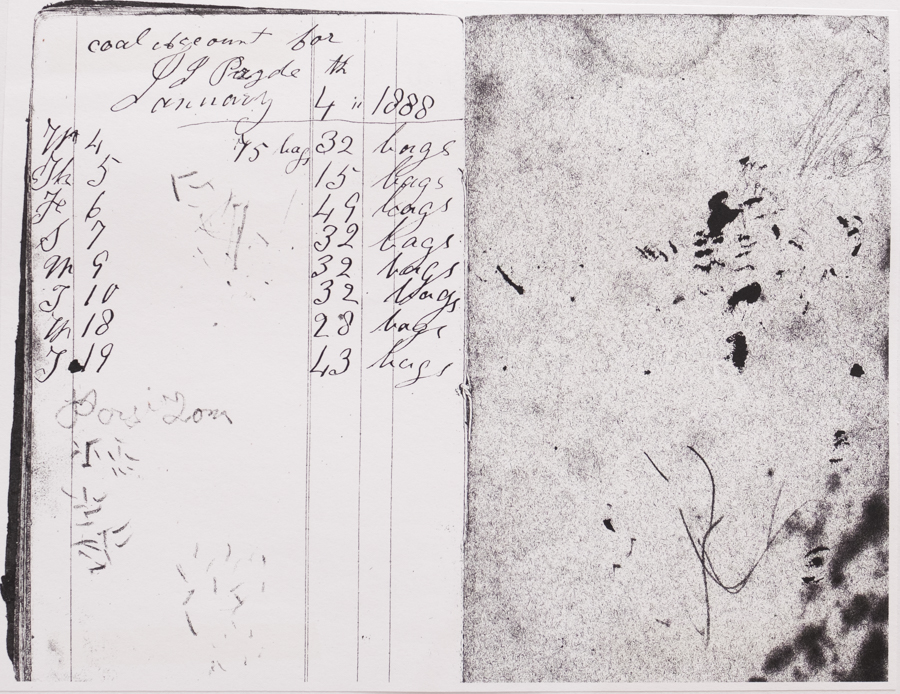 coal account for
J J Pagde th
January 4 " 1888
W 4 75 bags 32 bags
Th 5 15 bags
Fr 6 49 bags
S 7 32 bags
M 9 32 bags
T 10 32 bags
W 18 28 bags
T 19 43 bags